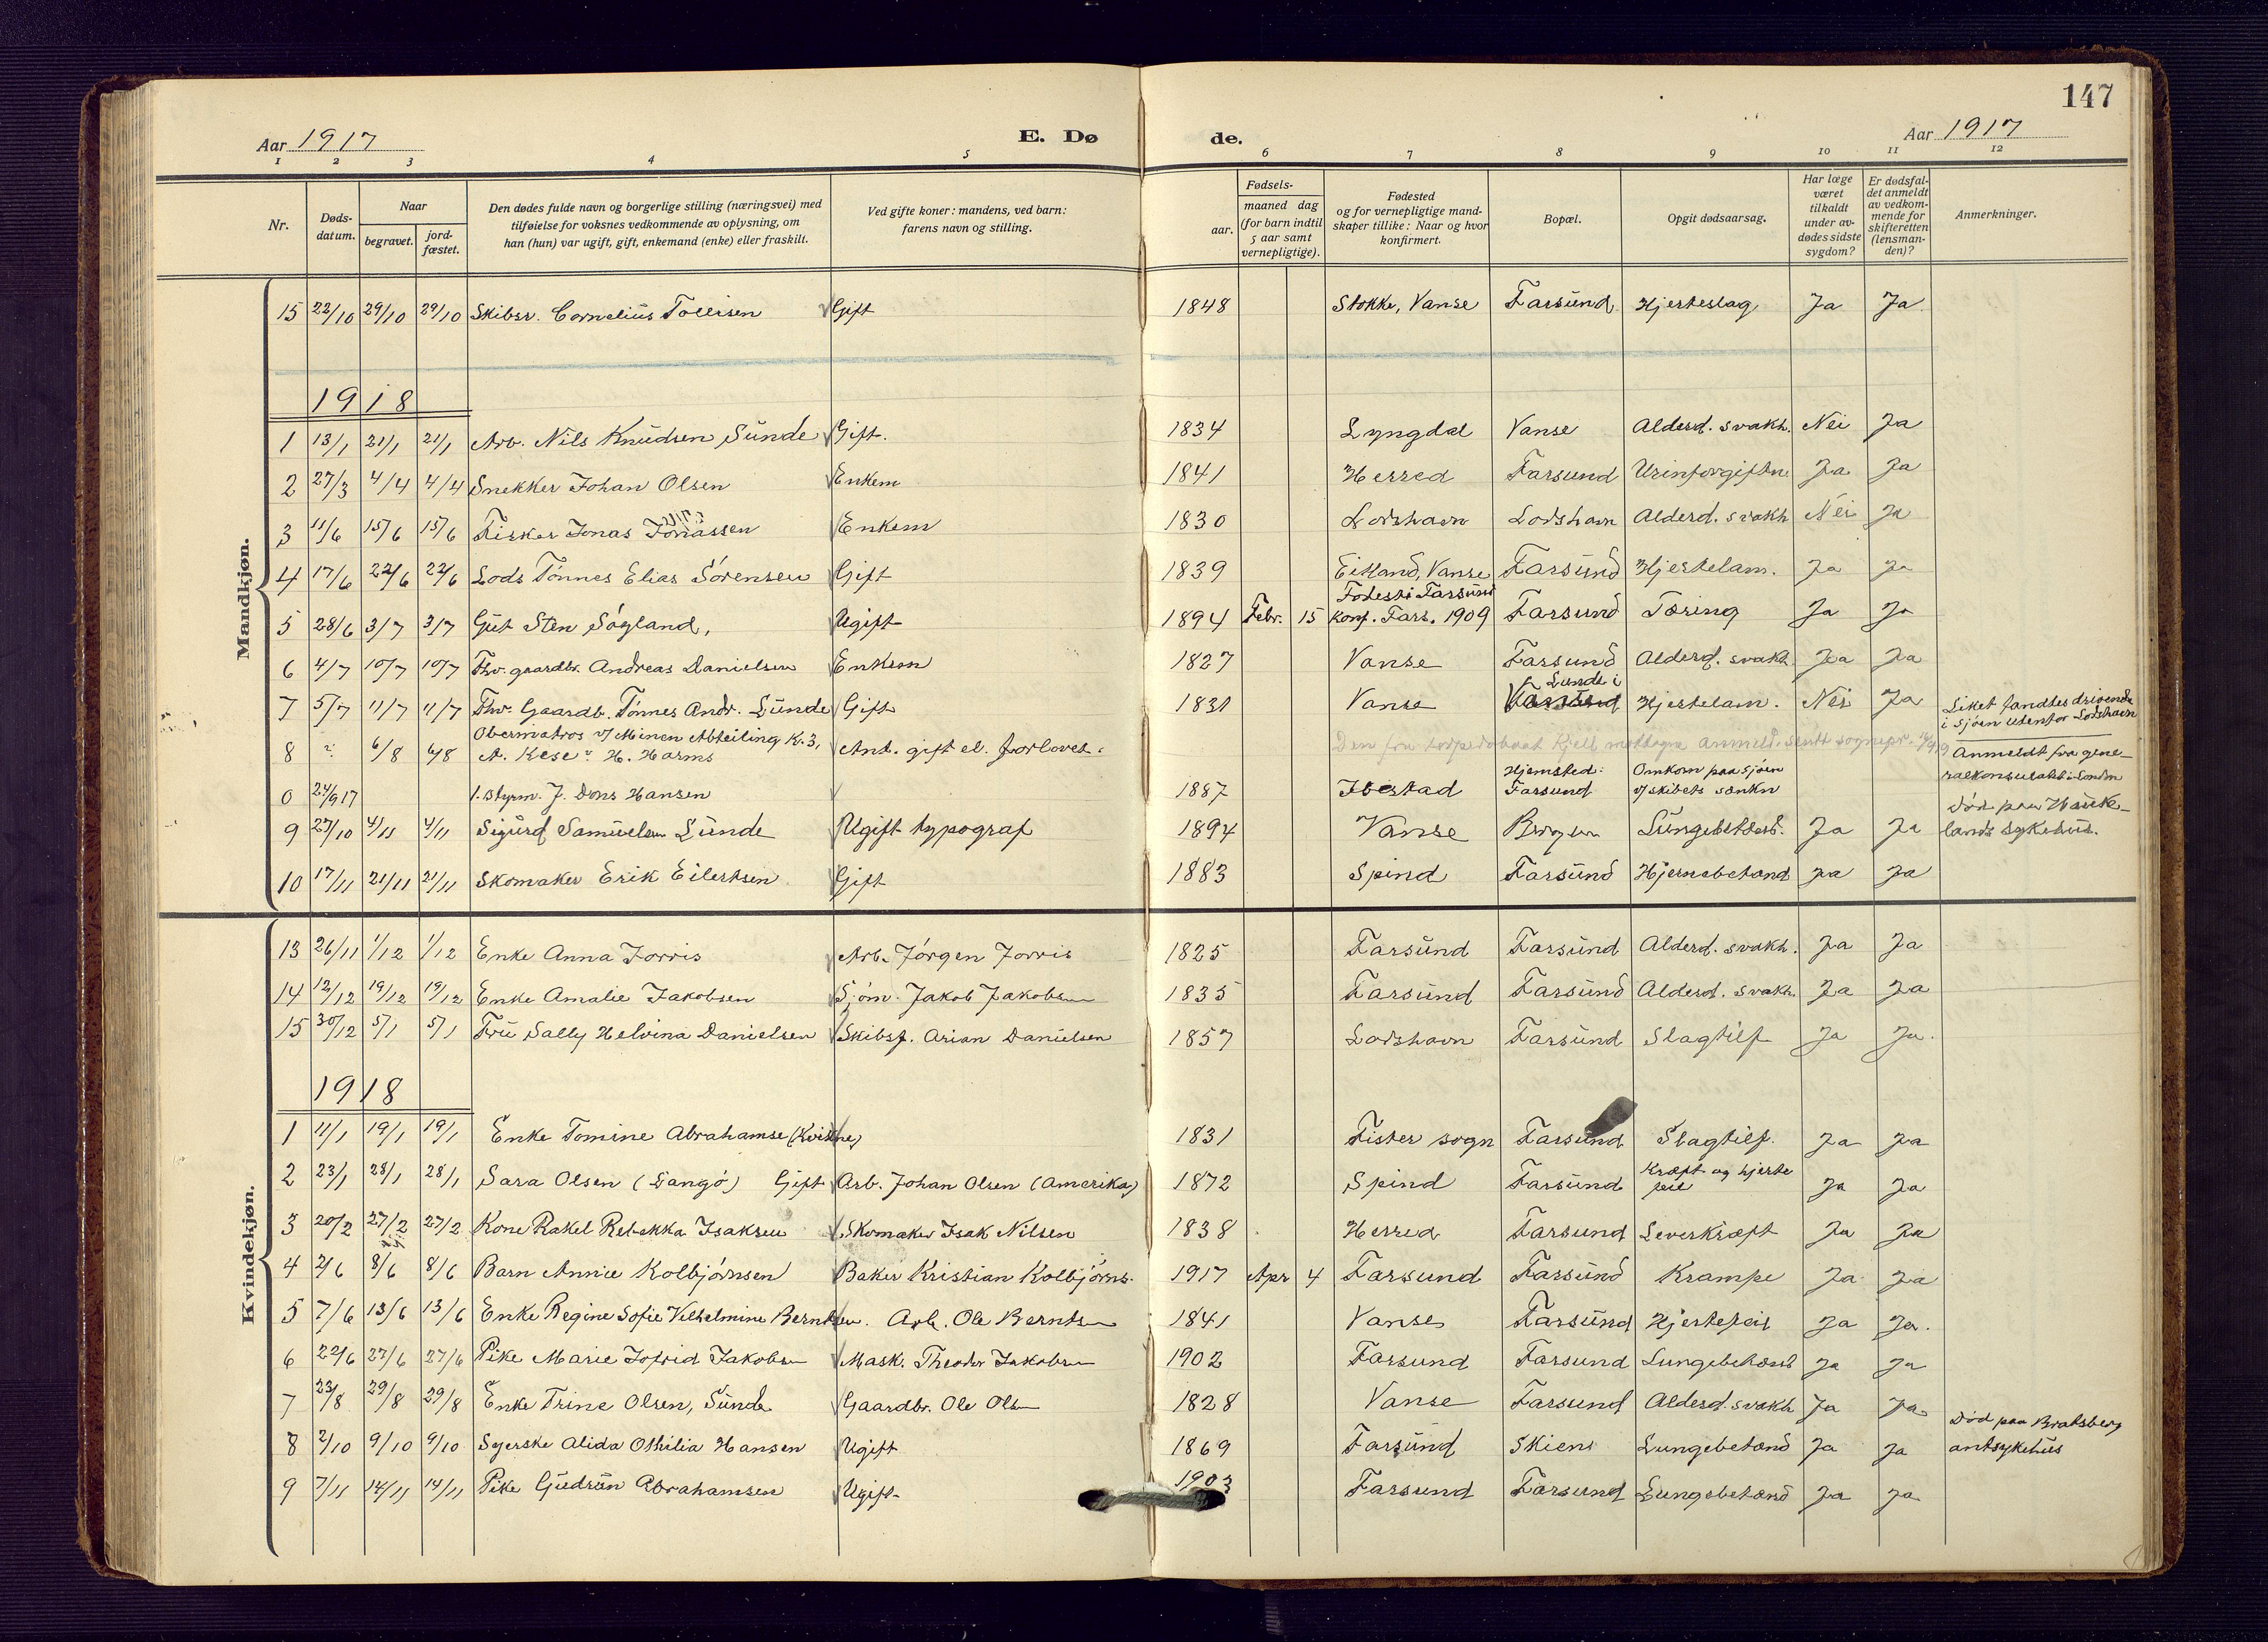 147
Aar 1917 E. Dø de. Aar 1917
1 2 3 4 5 6 7 8 9 10 11 12
Nr. Døds-datum. Naar begravet. jord-fæstet. Den dødes fulde navn og borgerlige stilling (næringsvei) med tilføielse for voksnes vedkommende av oplysning, om han (hun) var ugift, gift, enkemand (enke) eller fraskilt. Ved gifte koner: mandens, ved barn: farens navn og stilling. Fødsels- aar. maaned dag (for barn indtil 5 aar samt vernepligtige). Fødested og for vernepligtige mandskaper tillike: Naar og hvor konfirmert. Bopæl. Opgit dødsaarsag. Har læge været tilkaldt under avdødes sidste sygdom? Er dødsfaldet anmeldt av vedkommende for skifteretten (lensmanden)? Anmerkninger.
Mandkjøn.
15 22/10 29/10 29/10 Skibsr. Cornelius Tollisen Gift 1848 Stokke, Vanse Farsund Hjerteslag Ja Ja
1918
1 13/1 21/1 21/1 Arb. Nils Knudsen Sunde Gift. 1834 Lyngdal Vanse Alderd. svakh. Nei Ja
2 27/3 4/4 4/4 Snekker Johan Olsen Enkem 1841 Herred Farsund Urinforgiftn. Ja Ja
3 11/6 15/6 15/6 Fisker Jonas Jonassen Enkem 1830 Lodshavn Lodshavn Alderd. svakh Nei Ja
4 17/6 22/6 22/6 Lods Tönnes Elias Sörensen Gift 1839 Eikland, Vanse Farsund Hjertelam. Ja Ja
5 28/6 3/7 3/7 Gut Sten Sögland, Ugift 1894 Febr. 15 Födest i Farsund konf. Fars. 1909 Farsund Tæring Ja Ja
6 4/7 10/7 10/7 Fhv. gaardbr. Andreas Danielsen Enkem 1827 Vanse Farsund Alderd. svakh. Ja Ja
7 5/7 11/7 11/7 Fhv. Gaardb. Tönnes Andr. Lunde Gift 1831 Vanse Lunde i Vanse Hjertelam. Nei Ja
8 6/8 6/8 Obermatros v/ Minen Abteiling K. 3, H. Harms Ant. gift el. forlovet. Den fra torpedobaat Kjell mottagne anmeld. sendt sognepr. Liket fandtes drivende i sjöen utenfor Lodshavn
0 24/9 17 1. styrm. J. Dons Hansen 1887 Ibestad Hjemsted: Farsund Omkom paa sjöen v/ skibets sænkn Anmeldt fra generalkonsulatet i London
9 27/10 4/11 4/11 Sigurd Samuelsen Lunde Ugift typograf 1894 Vanse Bergen Lungebetænd. Ja Ja Död paa Haukelands sykehus.
10 17/11 21/11 21/11 Skomaker Erik Eilertsen Gift 1883 Spind Farsund Hjernebetænd Ja Ja
Kvindekjøn.
13 26/11 1/12 1/12 Enke Anna Jorris Arb. Jörgen Jorris 1825 Farsund Farsund Alderd. svakh. Ja Ja
14 12/12 19/12 19/12 Enke Amalie Jakobsen Sjöm. Jakob Jakobsen 1835 Farsund Farsund Alderd. svakh. Ja Ja
15 30/12 5/1 5/1 Fru Sally Helvina Danielsen Skibsf. Arian Danielsen 1857 Lodshavn Farsund Slagtilf Ja Ja.
1918
1 11/1 19/1 19/1 Enke Tomine Abrahamse (Kvinne) 1831 Fister sogn Farsund Slagtilf. Ja Ja
2 23/1 28/1 28/1 Sara Olsen (Gangö) Gift Arb. Johan Olsen (Amerika) 1872 Spind Farsund Kræft og hjertefeil Ja Ja
3 20/2 27/2 27/2 Kone Rakel Rebekka Isaksen Skomaker Isak Nilsen 1838 Herred Farsund Leverkræft Ja Ja
4 2/6 8/6 8/6 Barn Annie Kolbjörnsen Baker Kristian Kolbjörns. 1917 Apr 4 Farsund Farsund Krampe Ja Ja
5 7/6 13/6 13/6 Enke Regine Sofie Vilhelmine Berntsen. Arb. Ole Berntsen 1841 Vanse Farsund Hjertefeil Ja Ja.
6 22/6 27/6 27/6 Pike Marie Jofrid Jakobsen Mask. Theodor Jakobsen 1902 Farsund Farsund Lungebetænd Ja Ja
7 23/8 29/8 29/8 Enke Trine Olsen, Sunde Gaardbr. Ole Olsen 1828 Vanse Farsund Alderd. svakh Ja Ja
8 2/10 9/10 9/10 Syerske Alida Othilia Hansen Ugift 1869 Farsund Skien Lungebetænd Ja Ja Död paa Bratsberg amtsykehus
9 7/11 14/11 14/11 Pike Gudrun Abrahamsen Ugift 1903 Farsund Farsund Lungebetænd Ja Ja